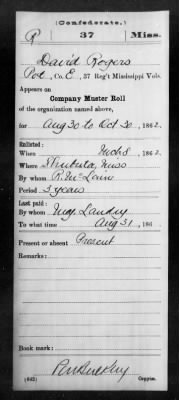 (Confederate.)
R 37 Miss.
David Rogers
Pvt, Co. E, 37 Reg't Mississippi Vols.
Appears on
Company Muster Roll
of the organization named above,
for Aug 30 to Oct 30, 1862.
Enlisted:
When Mch 8, 1862.
Where Shubuta, Miss
By whom R. McLain
Period 3 years
Last paid:
By whom Maj. Landry
To what time Aug 31, 186
Present or absent Present
Remarks:
Book mark:
(642) Copyist.